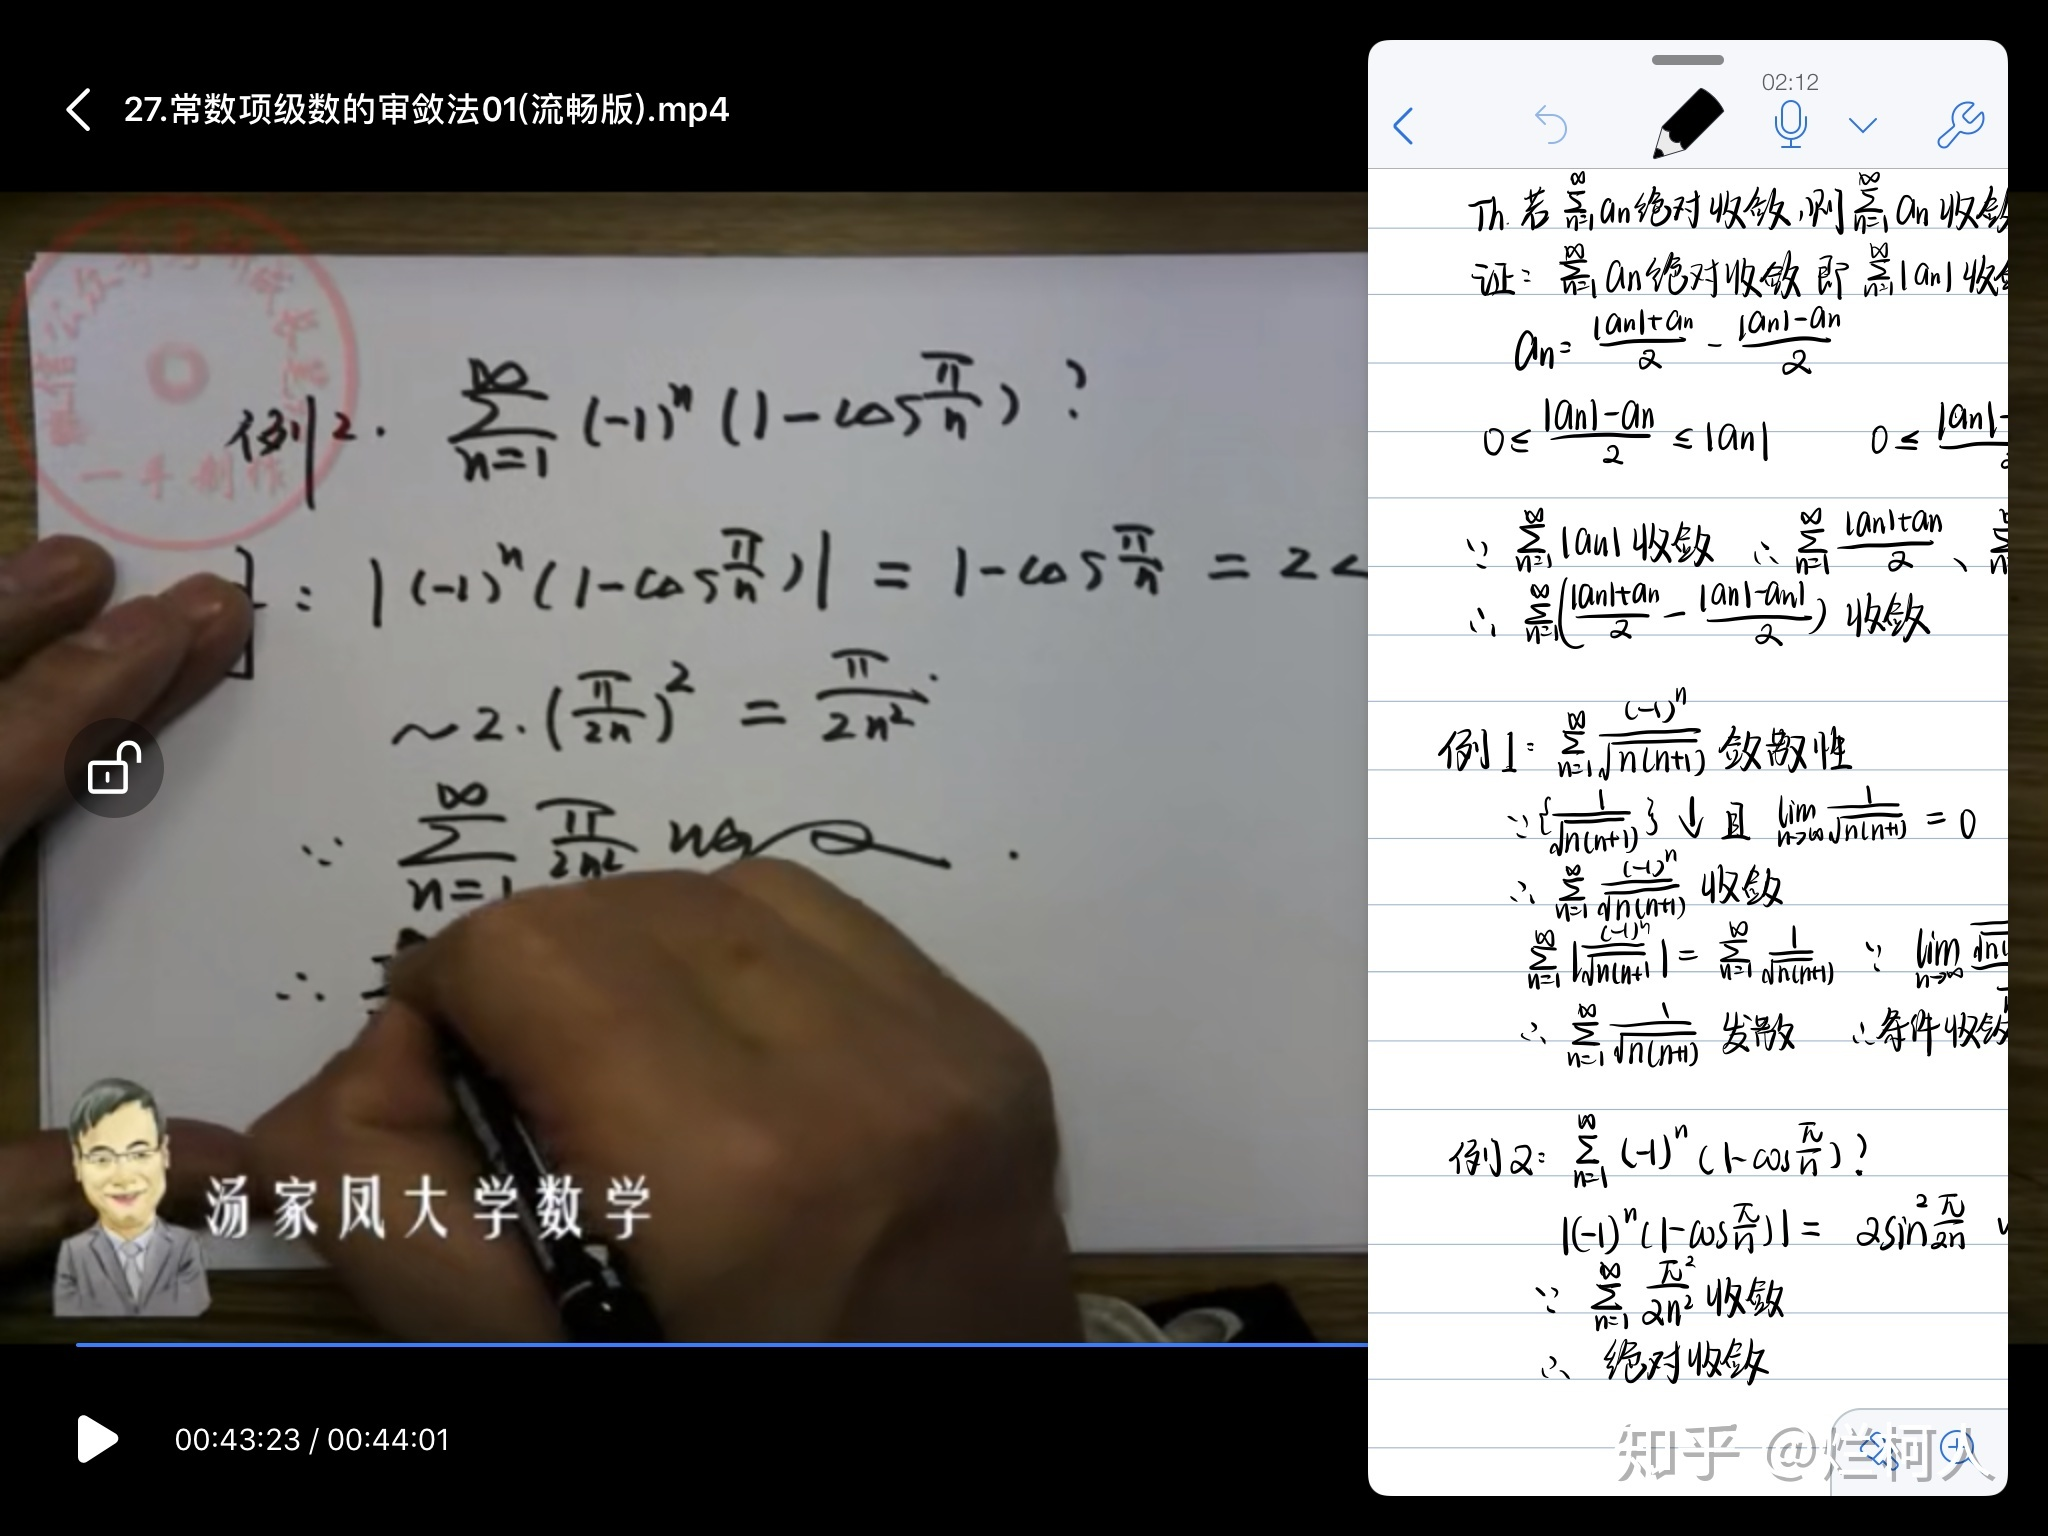 27.常数项级数的审敛法01(流畅版).mp4
例2. ∑_{n=1}^{∞} (-1)^n (1-cos π/n) ?
: |(-1)^n (1-cos π/n)| = 1-cos π/n = 2
~2·(π/2n)^2 = π/2n^2
∵ ∑_{n=1}^{∞} π/2n^2
∴
一手制作
汤家凤大学数学
00:43:23 / 00:44:01
02:12
Th. 若 ∑_{n=1}^{∞} an 绝对收敛,则 ∑_{n=1}^{∞} an 收敛
证: ∑_{n=1}^{∞} an 绝对收敛 即 ∑_{n=1}^{∞} |an| 收敛
an = (|an|+an)/2 - (|an|-an)/2
0 ≤ (|an|-an)/2 ≤ |an| 0 ≤ |an|-
∵ ∑_{n=1}^{∞} |an| 收敛 ∴ ∑_{n=1}^{∞} (|an|+an)/2 、
∴ ∑_{n=1}^{∞} ((|an|+an)/2 - (|an|-an|)/2) 收敛
例1: ∑_{n=1}^{∞} (-1)^n/√(n(n+1)) 敛散性
∵ {1/√(n(n+1))} ↓ 且 lim_{n→∞} 1/√(n(n+1)) = 0
∴ ∑_{n=1}^{∞} (-1)^n/√(n(n+1)) 收敛
∑_{n=1}^{∞} |(-1)^n/√(n(n+1)| = ∑_{n=1}^{∞} 1/√(n(n+1)) ∵ lim_{n→∞}
∴ ∑_{n=1}^{∞} 1/√(n(n+1)) 发散 ∴条件收敛
例2: ∑_{n=1}^{∞} (-1)^n (1-cos π/n) ?
|(-1)^n (1-cos π/n)| = 2sin^2 π/2n
∵ ∑_{n=1}^{∞} π^2/2n^2 收敛
∴ 绝对收敛
知乎 @烂柯人